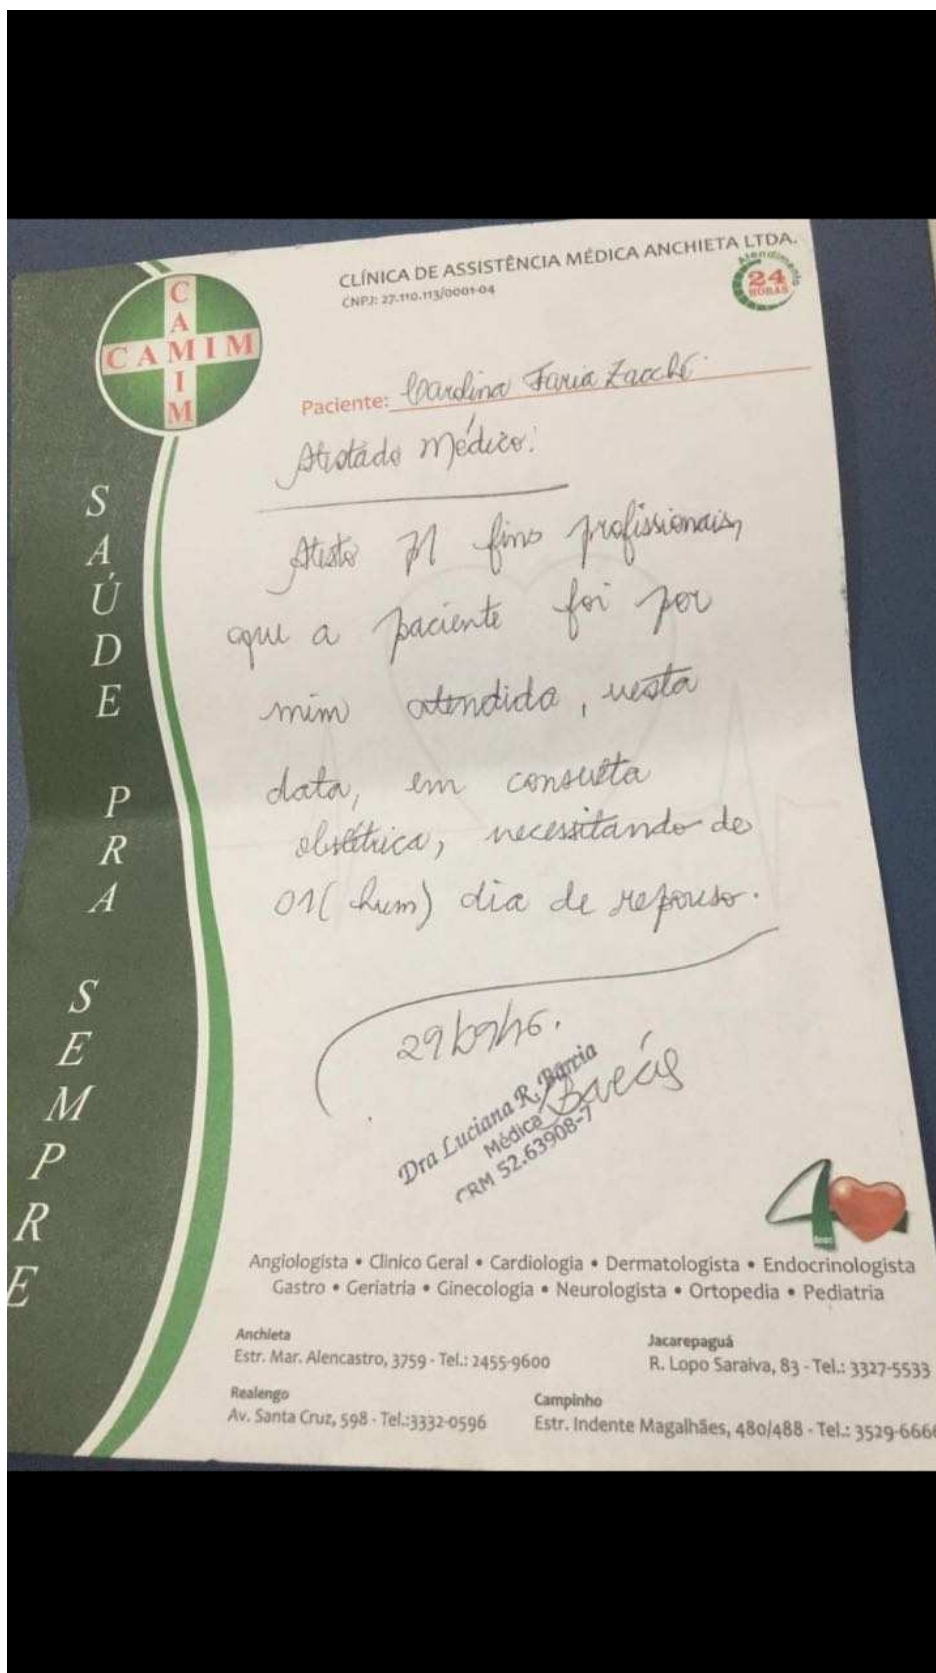 CLÍNICA DE ASSISTÊNCIA MÉDICA ANCHIETA LTDA.
CNPJ: 27.110.113/0001-04
Atendimento
24
HORAS
CAMIM
CAMIM
Paciente: Carolina Faria Zacché
Atestado Médico:
Atesto p/ fins profissionais,
que a paciente foi por
mim atendida, nesta
data, em consulta
obstétrica, necessitando de
01 (hum) dia de repouso.
29/09/16.
Dra Luciana R. Barcia
Médica
CRM 52.63908-7
SAÚDE PRA SEMPRE
40
anos
Angiologista • Clinico Geral • Cardiologia • Dermatologista • Endocrinologista
Gastro • Geriatria • Ginecologia • Neurologista • Ortopedia • Pediatria
Anchieta
Estr. Mar. Alencastro, 3759 - Tel.: 2455-9600
Jacarepaguá
R. Lopo Saraiva, 83 - Tel.: 3327-5533
Realengo
Av. Santa Cruz, 598 - Tel.:3332-0596
Campinho
Estr. Indente Magalhães, 480/488 - Tel.: 3529-666